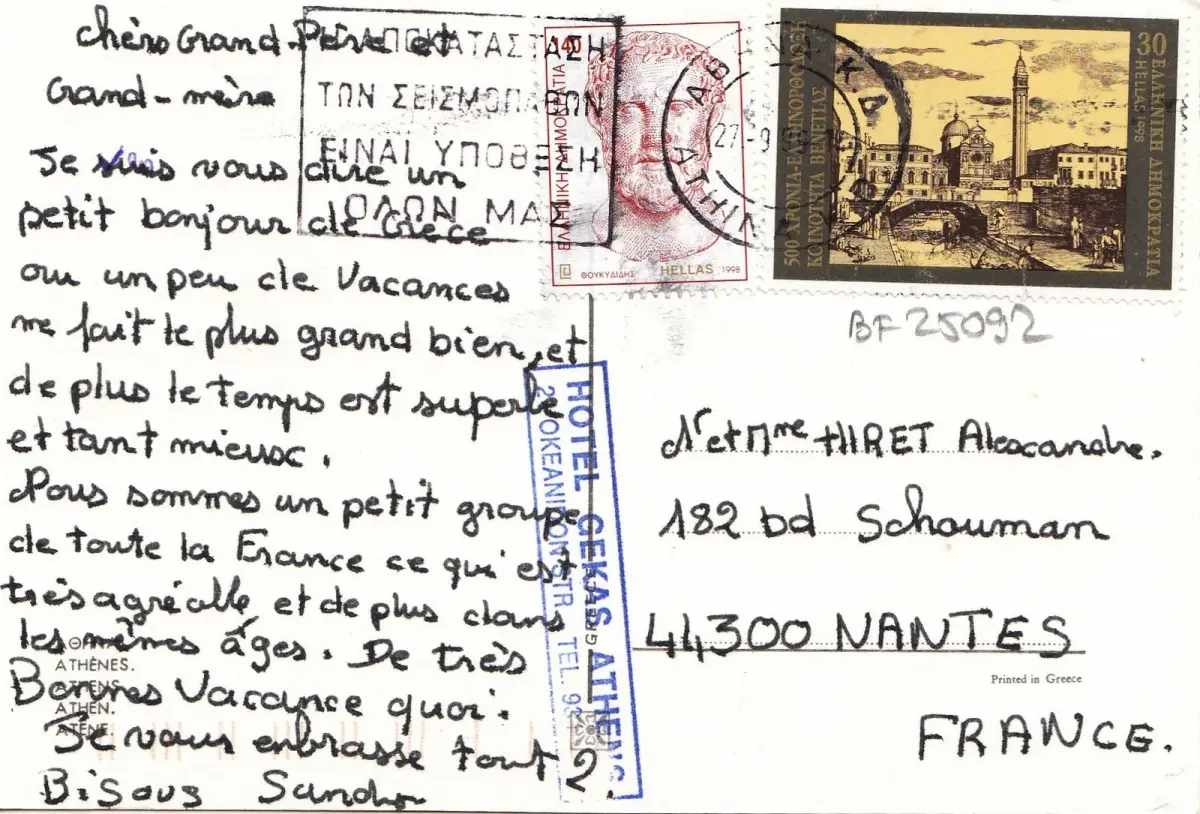 chers Grand-Père et
Grand-mère
Je vous dire un
petit bonjour de Grèce
ou un peu de Vacances
me fait le plus grand bien, et
de plus le temps est superbe
et tant mieux.
Nous sommes un petit groupe
de toute la France ce qui est
très agréable et de plus dans
les mêmes âges. De très
Bonnes Vacance quoi.
Je vous enbrasse tout 2.
Bisous Sandra
ΑΠΟΚΑΤΑΣΤΑΣΗ
ΤΩΝ ΣΕΙΣΜΟΠΑΘΩΝ
ΕΙΝΑΙ ΥΠΟΘΕΣΗ
ΟΛΩΝ ΜΑΣ
40
ΕΛΛΗΝΙΚΗ ΔΗΜΟΚΡΑΤΙΑ
ΘΟΥΚΥΔΙΔΗΣ
HELLAS 1998
ΑΘΗΝΑ
27-9
500 ΧΡΟΝΙΑ-ΕΛΛΗΝΟΡΘΟΔΟΞΗ
ΚΟΙΝΟΤΗΤΑ ΒΕΝΕΤΙΑΣ
30
ΕΛΛΗΝΙΚΗ ΔΗΜΟΚΡΑΤΙΑ
HELLAS 1998
BF 25092
HOTEL GEKAS ATHENS
OKEANIDON STR TEL. 93
Mr et Mme THIRET Alexandre.
182 bd Schouman
44300 NANTES
Printed in Greece
FRANCE.
ΑΘΗΝΑ
ATHÈNES.
ATHENS
ATHEN.
ATENE